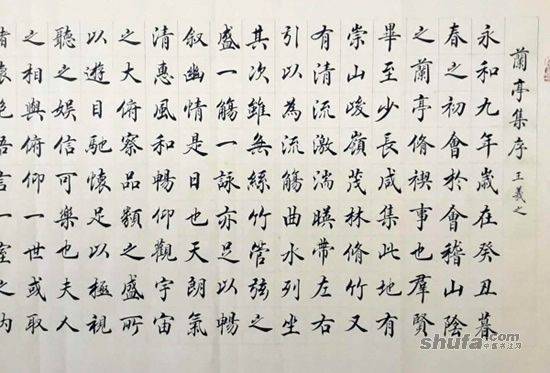 蘭亭集序 王羲之
永和九年歲在癸丑暮
春之初會於會稽山陰
之蘭亭脩禊事也羣賢
畢至少長咸集此地有
崇山峻嶺茂林脩竹又
有清流激湍暎帶左右
引以為流觴曲水列坐
其次雖無絲竹管弦之
盛一觴一詠亦足以暢
叙幽情是日也天朗氣
清惠風和暢仰觀宇宙
之大俯察品類之盛所
以遊目馳懷足以極視
聽之娛信可樂也夫人
之相與俯仰一世或取
言一室之内
shufa.com